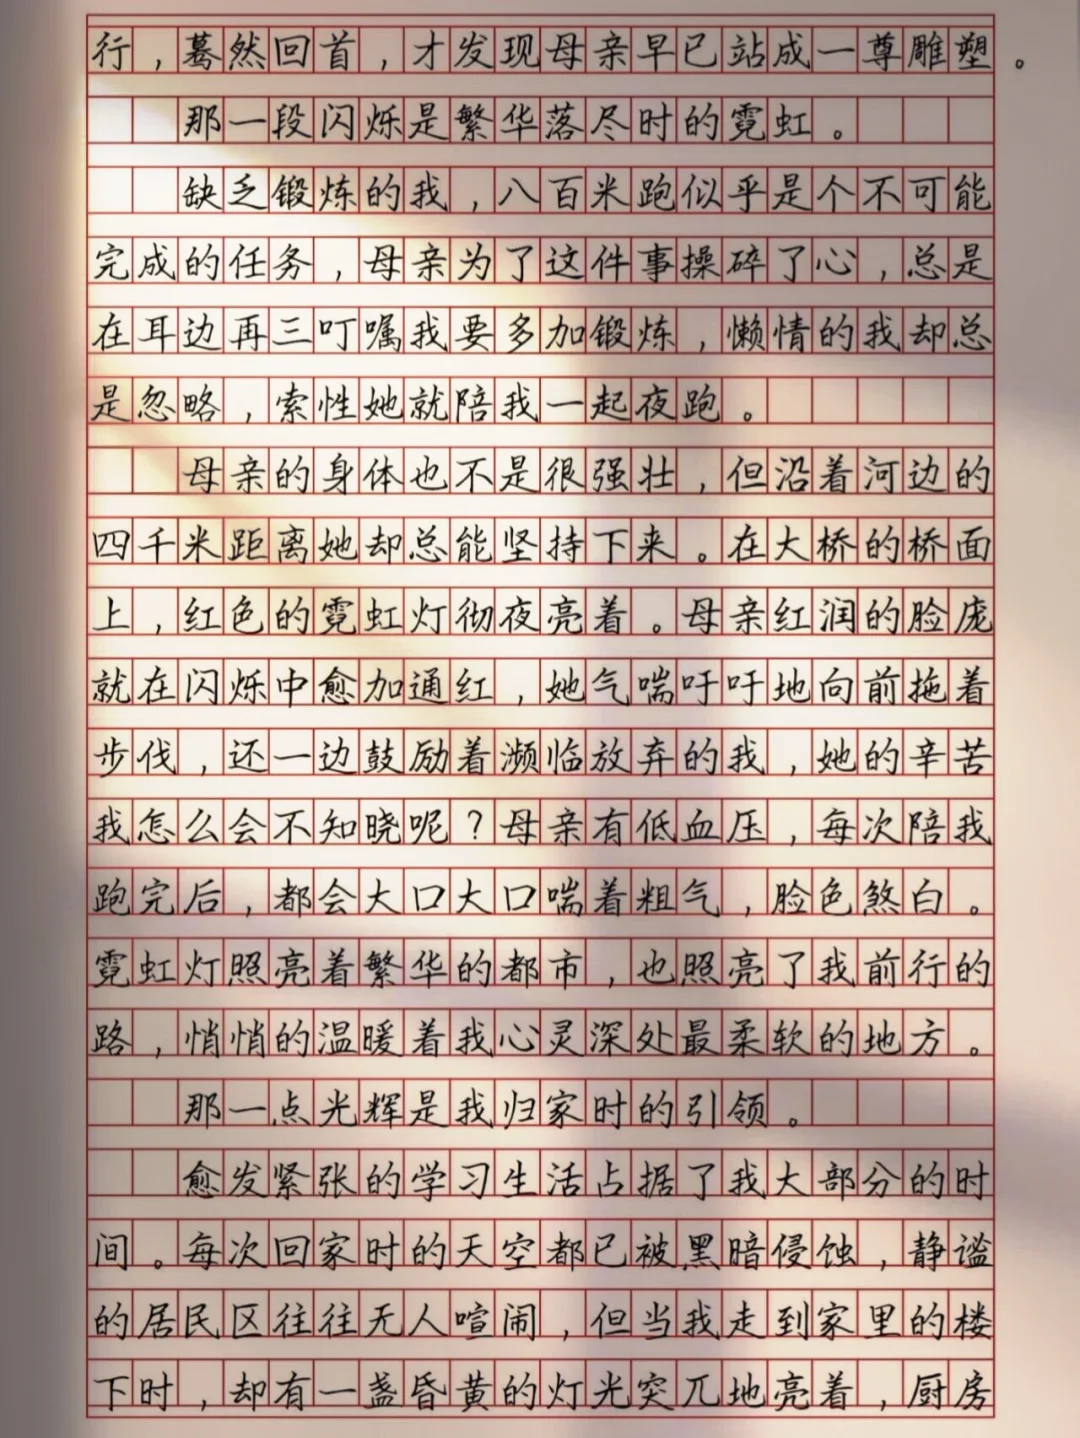 行，蓦然回首，才发现母亲早已站成一尊雕塑。
那一段闪烁是繁华落尽时的霓虹。
缺乏锻炼的我，八百米跑似乎是个不可能
完成的任务，母亲为了这件事操碎了心，总是
在耳边再三叮嘱我要多加锻炼，懒情的我却总
是忽略，索性她就陪我一起夜跑。
母亲的身体也不是很强壮，但沿着河边的
四千米距离她却总能坚持下来。在大桥的桥面
上，红色的霓虹灯彻夜亮着。母亲红润的脸庞
就在闪烁中愈加通红，她气喘吁吁地向前拖着
步伐，还一边鼓励着濒临放弃的我，她的辛苦
我怎么会不知晓呢？母亲有低血压，每次陪我
跑完后，都会大口大口喘着粗气，脸色煞白。
霓虹灯照亮着繁华的都市，也照亮了我前行的
路，悄悄的温暖着我心灵深处最柔软的地方。
那一点光辉是我归家时的引领。
愈发紧张的学习生活占据了我大部分的时
间。每次回家时的天空都已被黑暗侵蚀，静谧
的居民区往往无人喧闹，但当我走到家里的楼
下时，却有一盏昏黄的灯光突兀地亮着，厨房